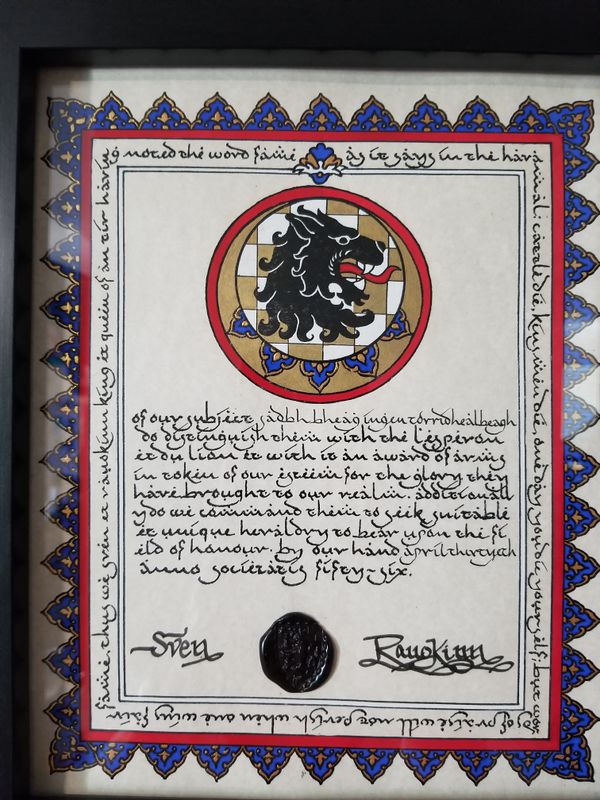 g noted the word fame as it says in the hava
mal: cattle die, kinsmen die, one day you die yourself; but wor
ds of praise will not perish when one wins fair
fame. thus we sven et rauokinn king et queen of an tir havin
of our subject sadbh bheag ingen torrdhealbeagh
do distinguish them with the l'esperon
et du lion et with it an award of arms
in token of our esteem for the glory they
have brought to our realm. additionall
y do we command them to seek suitable
et unique heraldry to bear upon the fi
eld of honour. by our hand april thirtyeth
anno societatis fifty-six.
Sven
Rauokinn